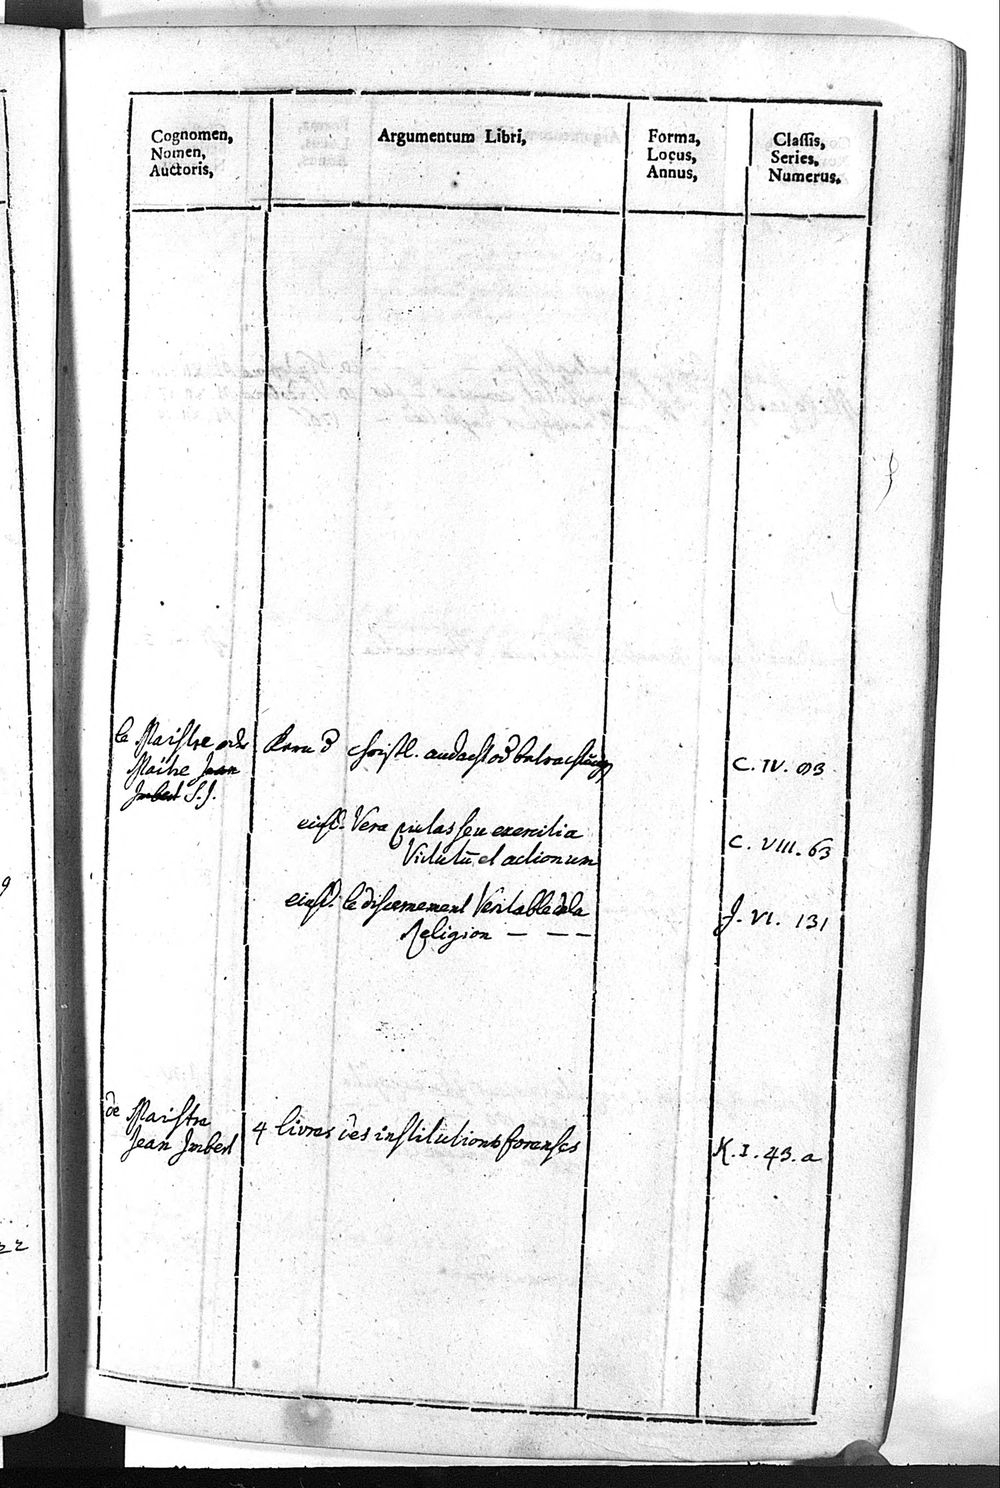 Cognomen,
Nomen,
Auctoris,
Argumentum Libri,
Forma,
Locus,
Annus,
Classis,
Series,
Numerus.
le Maistre oder
Maitre Jean
Imbert S.J.
Kern d christl. andacht od betrachtung
C. IV. 93
eiusd. Vera pietas seu exercitia
Virtutū et actionum
C. VIII. 63
eiusd. le discernement Veritable de la
Religion — — —
J. VI. 131
de Maistre
Jean Imbert
4 livres des institutions forenses
K. I. 43. a
9
22